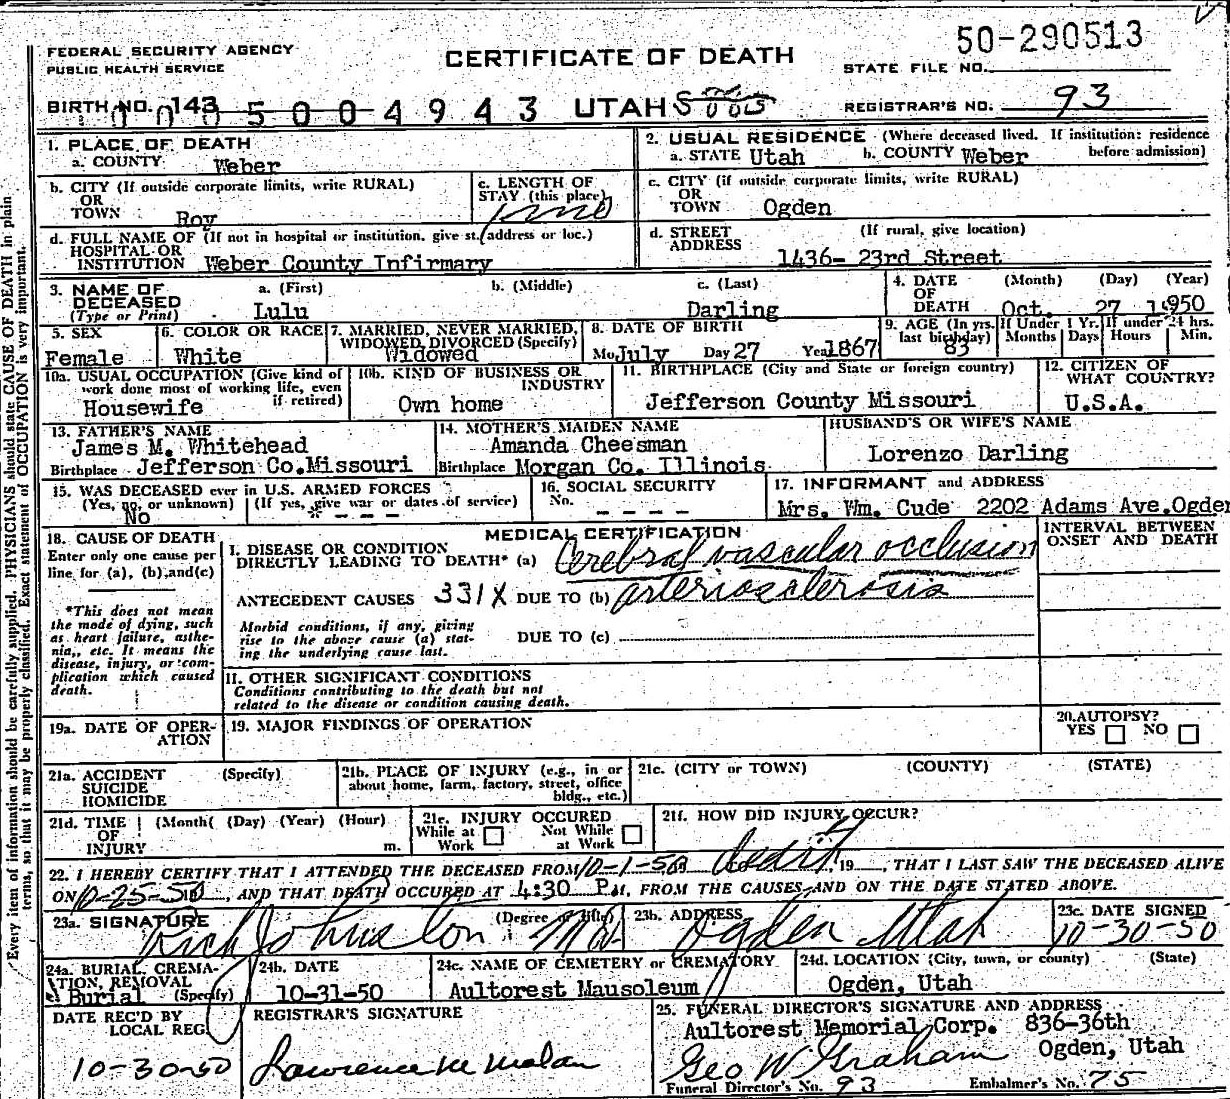 50-290513
FEDERAL SECURITY AGENCY
PUBLIC HEALTH SERVICE
CERTIFICATE OF DEATH
STATE FILE NO.
BIRTH NO. 143
0005004943
UTAH
REGISTRAR'S NO. 93
1. PLACE OF DEATH
a. COUNTY Weber
2. USUAL RESIDENCE (Where deceased lived. If institution: residence before admission)
a. STATE Utah b. COUNTY Weber
b. CITY (If outside corporate limits, write RURAL)
OR
TOWN Roy
c. LENGTH OF
STAY (this place)
c. CITY (if outside corporate limits, write RURAL)
OR
TOWN Ogden
d. FULL NAME OF (If not in hospital or institution, give st. address or loc.)
HOSPITAL OR
INSTITUTION Weber County Infirmary
d. STREET (If rural, give location)
ADDRESS 1436- 23rd Street
3. NAME OF DECEASED (Type or Print)
a. (First) Lulu
b. (Middle)
c. (Last) Darling
4. DATE OF DEATH (Month) (Day) (Year)
Oct. 27 1950
5. SEX
Female
6. COLOR OR RACE
White
7. MARRIED, NEVER MARRIED,
WIDOWED, DIVORCED (Specify)
Widowed
8. DATE OF BIRTH
Mo July Day 27 Year 1867
9. AGE (In yrs. last birthday) 83
If Under 1 Yr. Months Days
If under 24 hrs. Hours Min.
10a. USUAL OCCUPATION (Give kind of
work done most of working life, even
if retired)
Housewife
10b. KIND OF BUSINESS OR
INDUSTRY
Own home
11. BIRTHPLACE (City and State or foreign country)
Jefferson County Missouri
12. CITIZEN OF
WHAT COUNTRY?
U.S.A.
13. FATHER'S NAME
James M. Whitehead
Birthplace Jefferson Co. Missouri
14. MOTHER'S MAIDEN NAME
Amanda Cheesman
Birthplace Morgan Co. Illinois
HUSBAND'S OR WIFE'S NAME
Lorenzo Darling
15. WAS DECEASED ever in U.S. ARMED FORCES ?
(Yes, no, or unknown) (If yes, give war or dates of service)
No - - -
16. SOCIAL SECURITY
No.
- - - -
17. INFORMANT and ADDRESS
Mrs. Wm. Cude 2202 Adams Ave. Ogden
18. CAUSE OF DEATH
Enter only one cause per
line for (a), (b), and (c)
*This does not mean
the mode of dying, such
as heart failure, asthe-
nia, etc. It means the
disease, injury, or com-
plication which caused
death.
MEDICAL CERTIFICATION
INTERVAL BETWEEN
ONSET AND DEATH
I. DISEASE OR CONDITION
DIRECTLY LEADING TO DEATH* (a) Cerebral vascular occlusion
ANTECEDENT CAUSES 331X DUE TO (b) arteriosclerosis
Morbid conditions, if any, giving
rise to the above cause (a) stat-
ing the underlying cause last.
DUE TO (c)
II. OTHER SIGNIFICANT CONDITIONS
Conditions contributing to the death but not
related to the disease or condition causing death.
19a. DATE OF OPER-
ATION
19. MAJOR FINDINGS OF OPERATION
20. AUTOPSY?
YES NO
21a. ACCIDENT (Specify)
SUICIDE
HOMICIDE
21b. PLACE OF INJURY (e.g., in or
about home, farm, factory, street, office
bldg., etc.)
21c. (CITY or TOWN) (COUNTY) (STATE)
21d. TIME (Month( (Day) (Year) (Hour)
OF
INJURY m.
21e. INJURY OCCURED
While at Work Not While at Work
21f. HOW DID INJURY OCCUR?
22. I HEREBY CERTIFY THAT I ATTENDED THE DECEASED FROM 10-1-50 , 19 , THAT I LAST SAW THE DECEASED ALIVE
ON 10-25-50 , AND THAT DEATH OCCURED AT 4:30 P M, FROM THE CAUSES AND ON THE DATE STATED ABOVE.
23a. SIGNATURE (Degree or title)
Rich Johnston MD
23b. ADDRESS
Ogden Utah
23c. DATE SIGNED
10-30-50
24a. BURIAL, CREMA-
TION, REMOVAL
Burial (Specify)
24b. DATE
10-31-50
24c. NAME OF CEMETERY or CREMATORY
Aultorest Mausoleum
24d. LOCATION (City, town, or county) (State)
Ogden, Utah
DATE REC'D BY
LOCAL REG.
10-30-50
REGISTRAR'S SIGNATURE
Lawrence M Malan
25. FUNERAL DIRECTOR'S SIGNATURE AND ADDRESS
Aultorest Memorial Corp. 836-36th
Geo W Graham Ogden, Utah
Funeral Director's No. 93 Embalmer's No. 75
Every item of information should be carefully supplied. PHYSICIANS should state CAUSE OF DEATH in plain
terms, so that it may be properly classified. Exact statement of OCCUPATION is very important.